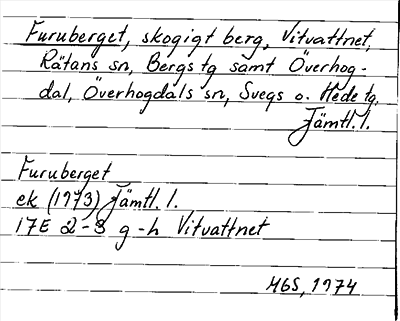 Furuberget, skogigt berg, Vitvattnet,
Rätans sn, Bergs tg samt Överhog-
dal, Överhogdals sn, Svegs o. Hede tg,
Jämtl. l.
Furuberget
ek (1973) Jämtl. l.
17E 2-3 g-h Vitvattnet
MGS, 1974